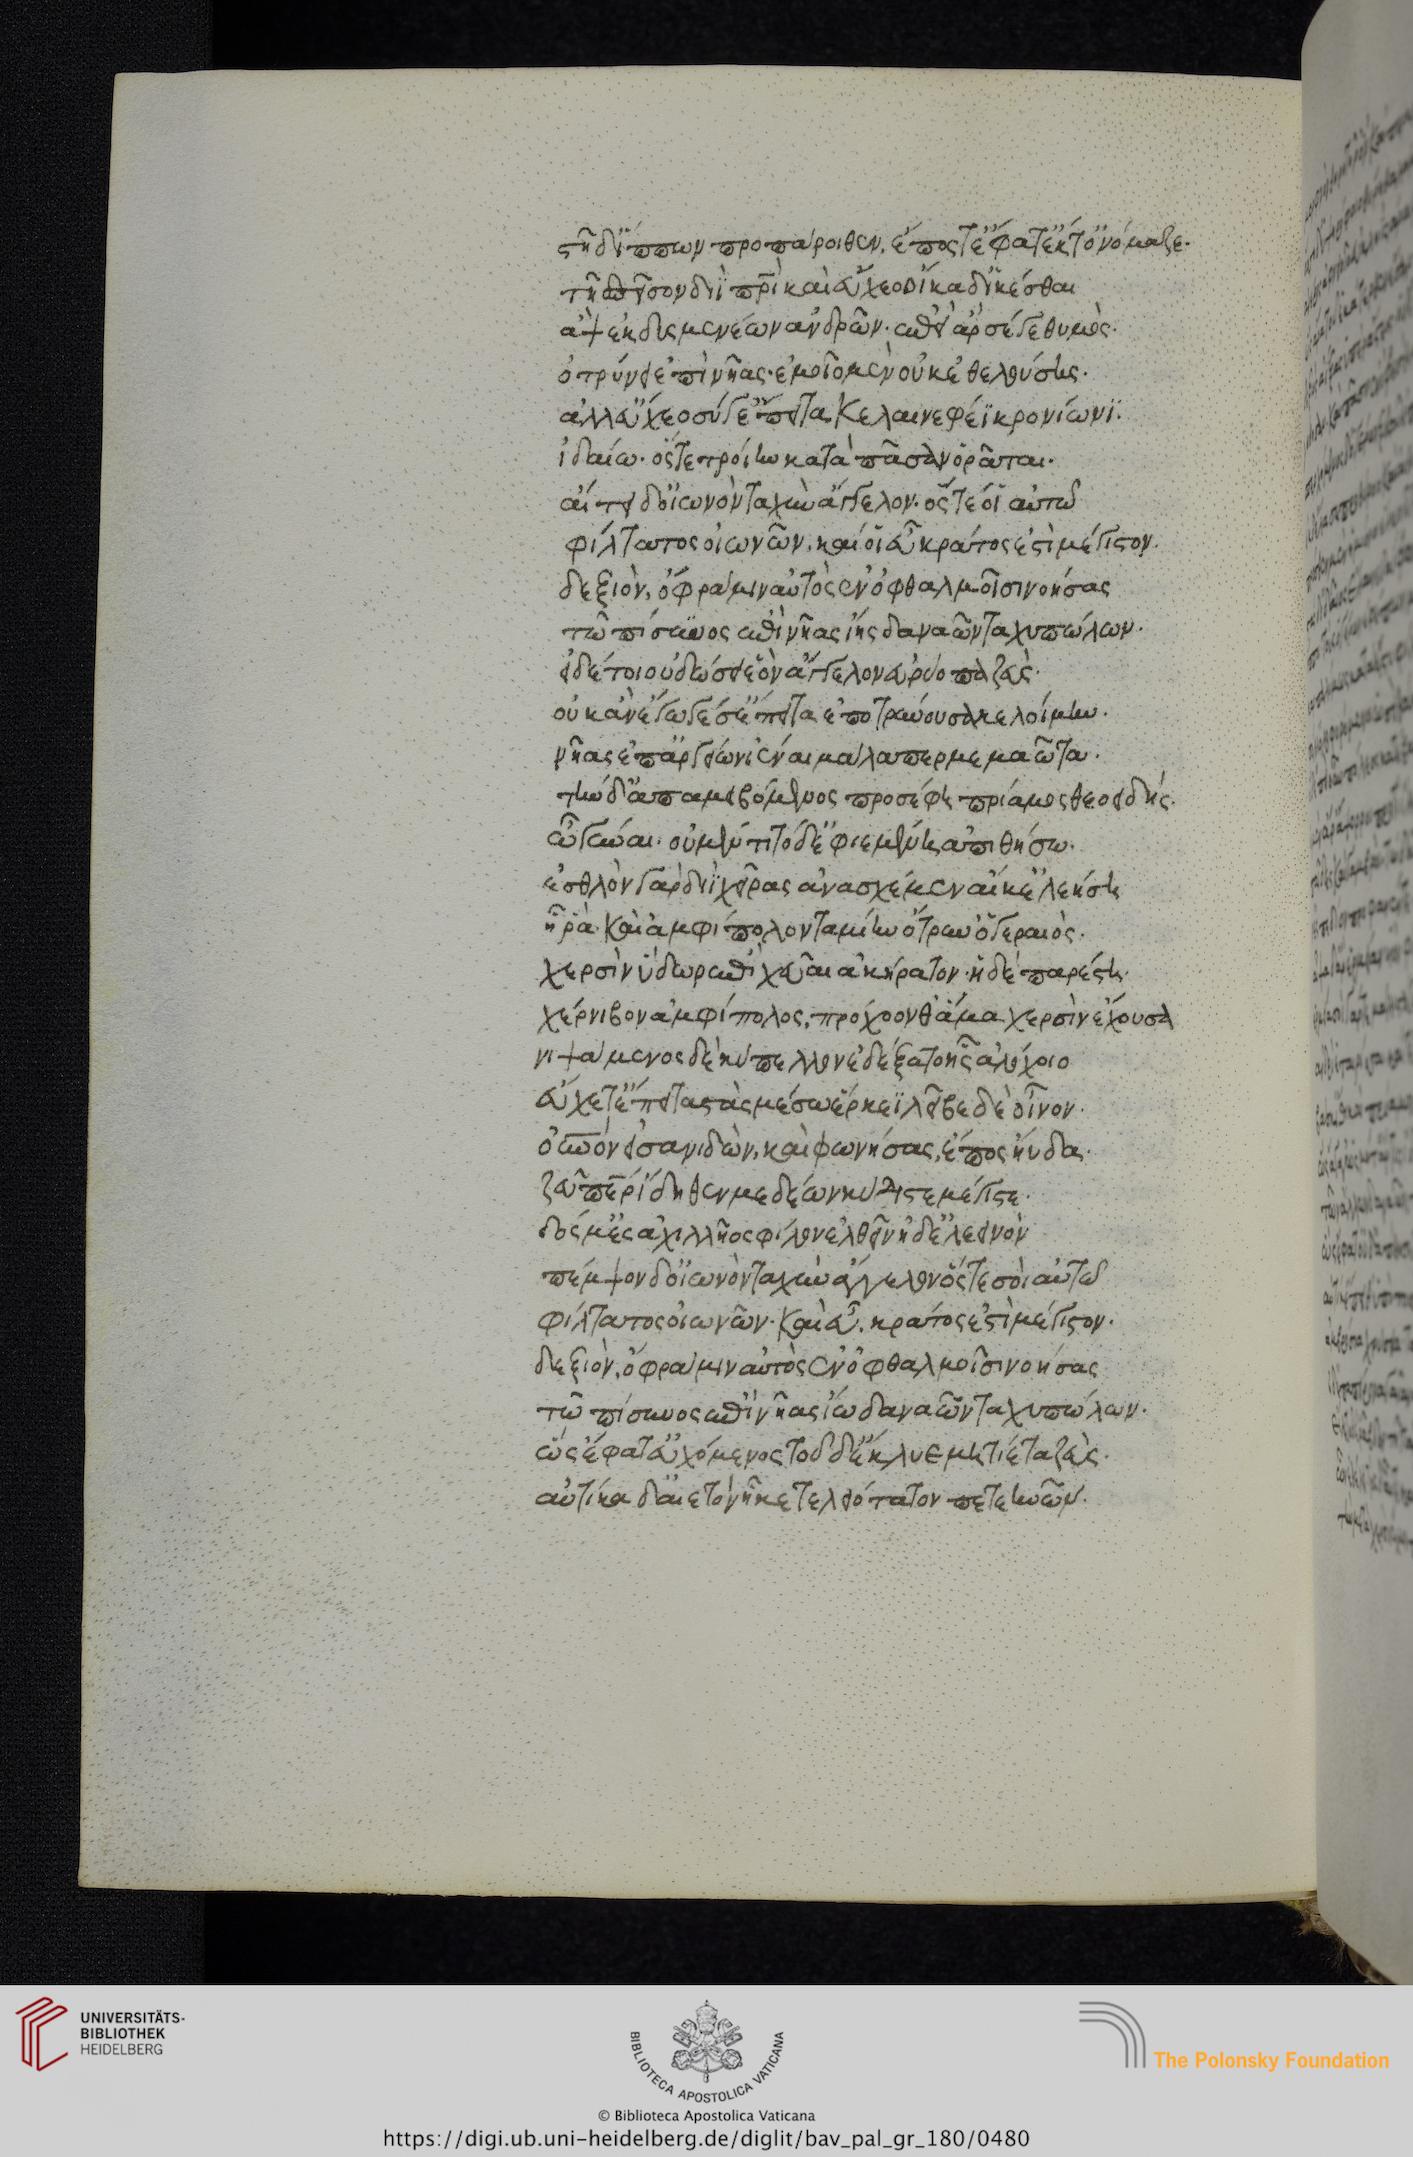 στῆ δ' ἵππων προπάροιθεν, ἔπος τ' ἔφατ' ἔκ τ' ὀνόμαζε·
τῆ σπεῖσον διῒ πρὶ καὶ εὔχεο οἴκαδ' ἱκέσθαι
ἂψ ἐκ δυσμενέων ἀνδρῶν· ἐπεὶ ἂρ σέ γε θυμὸς·
ὀτρύνει ἐπὶ νῆας· ἐμοῖο μὲν οὐκ ἐθελούσης·
ἀλλ' εὔχεο σύ γ' ἔπειτα κελαινεφέϊ κρονίωνι·
ἰδαίω· ὅς τε τροίην κατὰ πᾶσαν ὁρᾶται·
αἴτει δ' οἰωνὸν ταχὺν ἄγγελον· ὅς τέ οἱ αὐτῶ
φίλτατος οἰωνῶν, καί οἱ εὖ κράτος ἐστὶ μέγιστον·
δεξιὸν, ὄφρά μιν αὐτὸς ἐν ὀφθαλμοῖσι νοήσας
τῶ πίσυνος ἐπὶ νῆας ἴης δαναῶν ταχυπώλων·
εἰ δέ τοι οὐ δώσει ἑὸν ἄγγελον εὐρύοπα ζεὺς·
οὐκ ἂν ἔγωγέ σ' ἔπειτα ἐποτρύνουσα κελοίμην·
νῆας ἐπ' ἀργείων ἰέναι μάλα περ μεμαῶτα·
τὴν δ' ἀπαμειβόμενος προσέφη πρίαμος θεοειδής·
ὦ γύναι· οὐ μέν τι τόδ' ἐφιεμένης ἀπιθήσω·
ἐσθλὸν γὰρ διῒ χεῖρας ἀνασχέμεν αἴ κ' ἐλεήση
ἦ ῥὰ· καὶ ἀμφίπολον ταμίην ὄτρυν' ὁ γεραιὸς·
χερσὶν ὕδωρ ἐπιχεῦαι ἀκήρατον· ἡ δὲ παρέστη·
χέρνιβον ἀμφίπολος, πρόχοον θ' ἅμα χερσὶν ἔχουσα
νιψάμενος δὲ κύπελλον ἐδέξατο ἧς ἀλόχοιο
εὔχετ' ἔπειτα στὰς μέσω ἕρκεϊ λεῖβε δὲ οἶνον·
οὐρανὸν εἰσανιδὼν, καὶ φωνήσας, ἔπος ηὔδα·
ζεῦ περ ἴδηθεν μεδέων κύδιστε μέγιστε·
δός μ' ἐς ἀχιλλῆος φίλον ἐλθεῖν ἠδ' ἐλεεινὸν
πέμψον δ' οἰωνὸν ταχὺν ἄγγελον ὅς τε σοὶ αὐτῶ
φίλτατος οἰωνῶν· καὶ εὖ, κράτος ἐστὶ μέγιστον·
δεξιὸν, ὄφρά μιν αὐτὸς ἐν ὀφθαλμοῖσι νοήσας
τῶ πίσυνος ἐπὶ νῆας ἴω δαναῶν ταχυπώλων·
ὣς ἔφατ' εὐχόμενος τοῦ δ' ἔκλυε μητίετα ζεὺς·
αὐτίκα δ' αἰετὸν ἧκε τελειότατον πετεηνῶν·
UNIVERSITÄTS-
BIBLIOTHEK
HEIDELBERG
BIBLIOTECA APOSTOLICA VATICANA
The Polonsky Foundation
© Biblioteca Apostolica Vaticana
https://digi.ub.uni-heidelberg.de/diglit/bav_pal_gr_180/0480